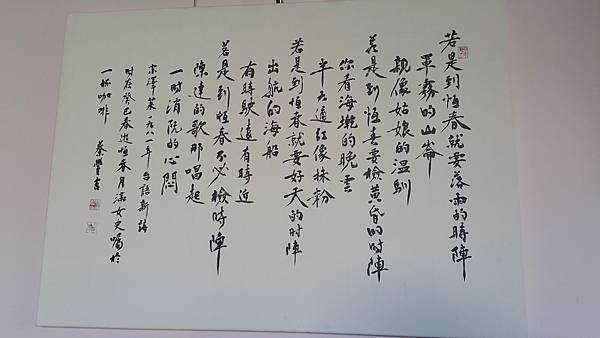 若是到恆春就要落雨的時陣
罩霧的山崙
親像姑娘的温馴
若是到恆春要檢黃昏的时陣
你看海墘的晚雲
半天通紅像抹粉
若是到恆春就要好天的时陣
出航的海船
有時駛遠有時近
若是到恆春不必檢時陣
陳達的歌那唱起
一时消阮的心悶
宋澤萊一九八一年 台語新詩
时在癸巳春遊恆春月滿女史囑於
一杯咖啡 蔡豐書